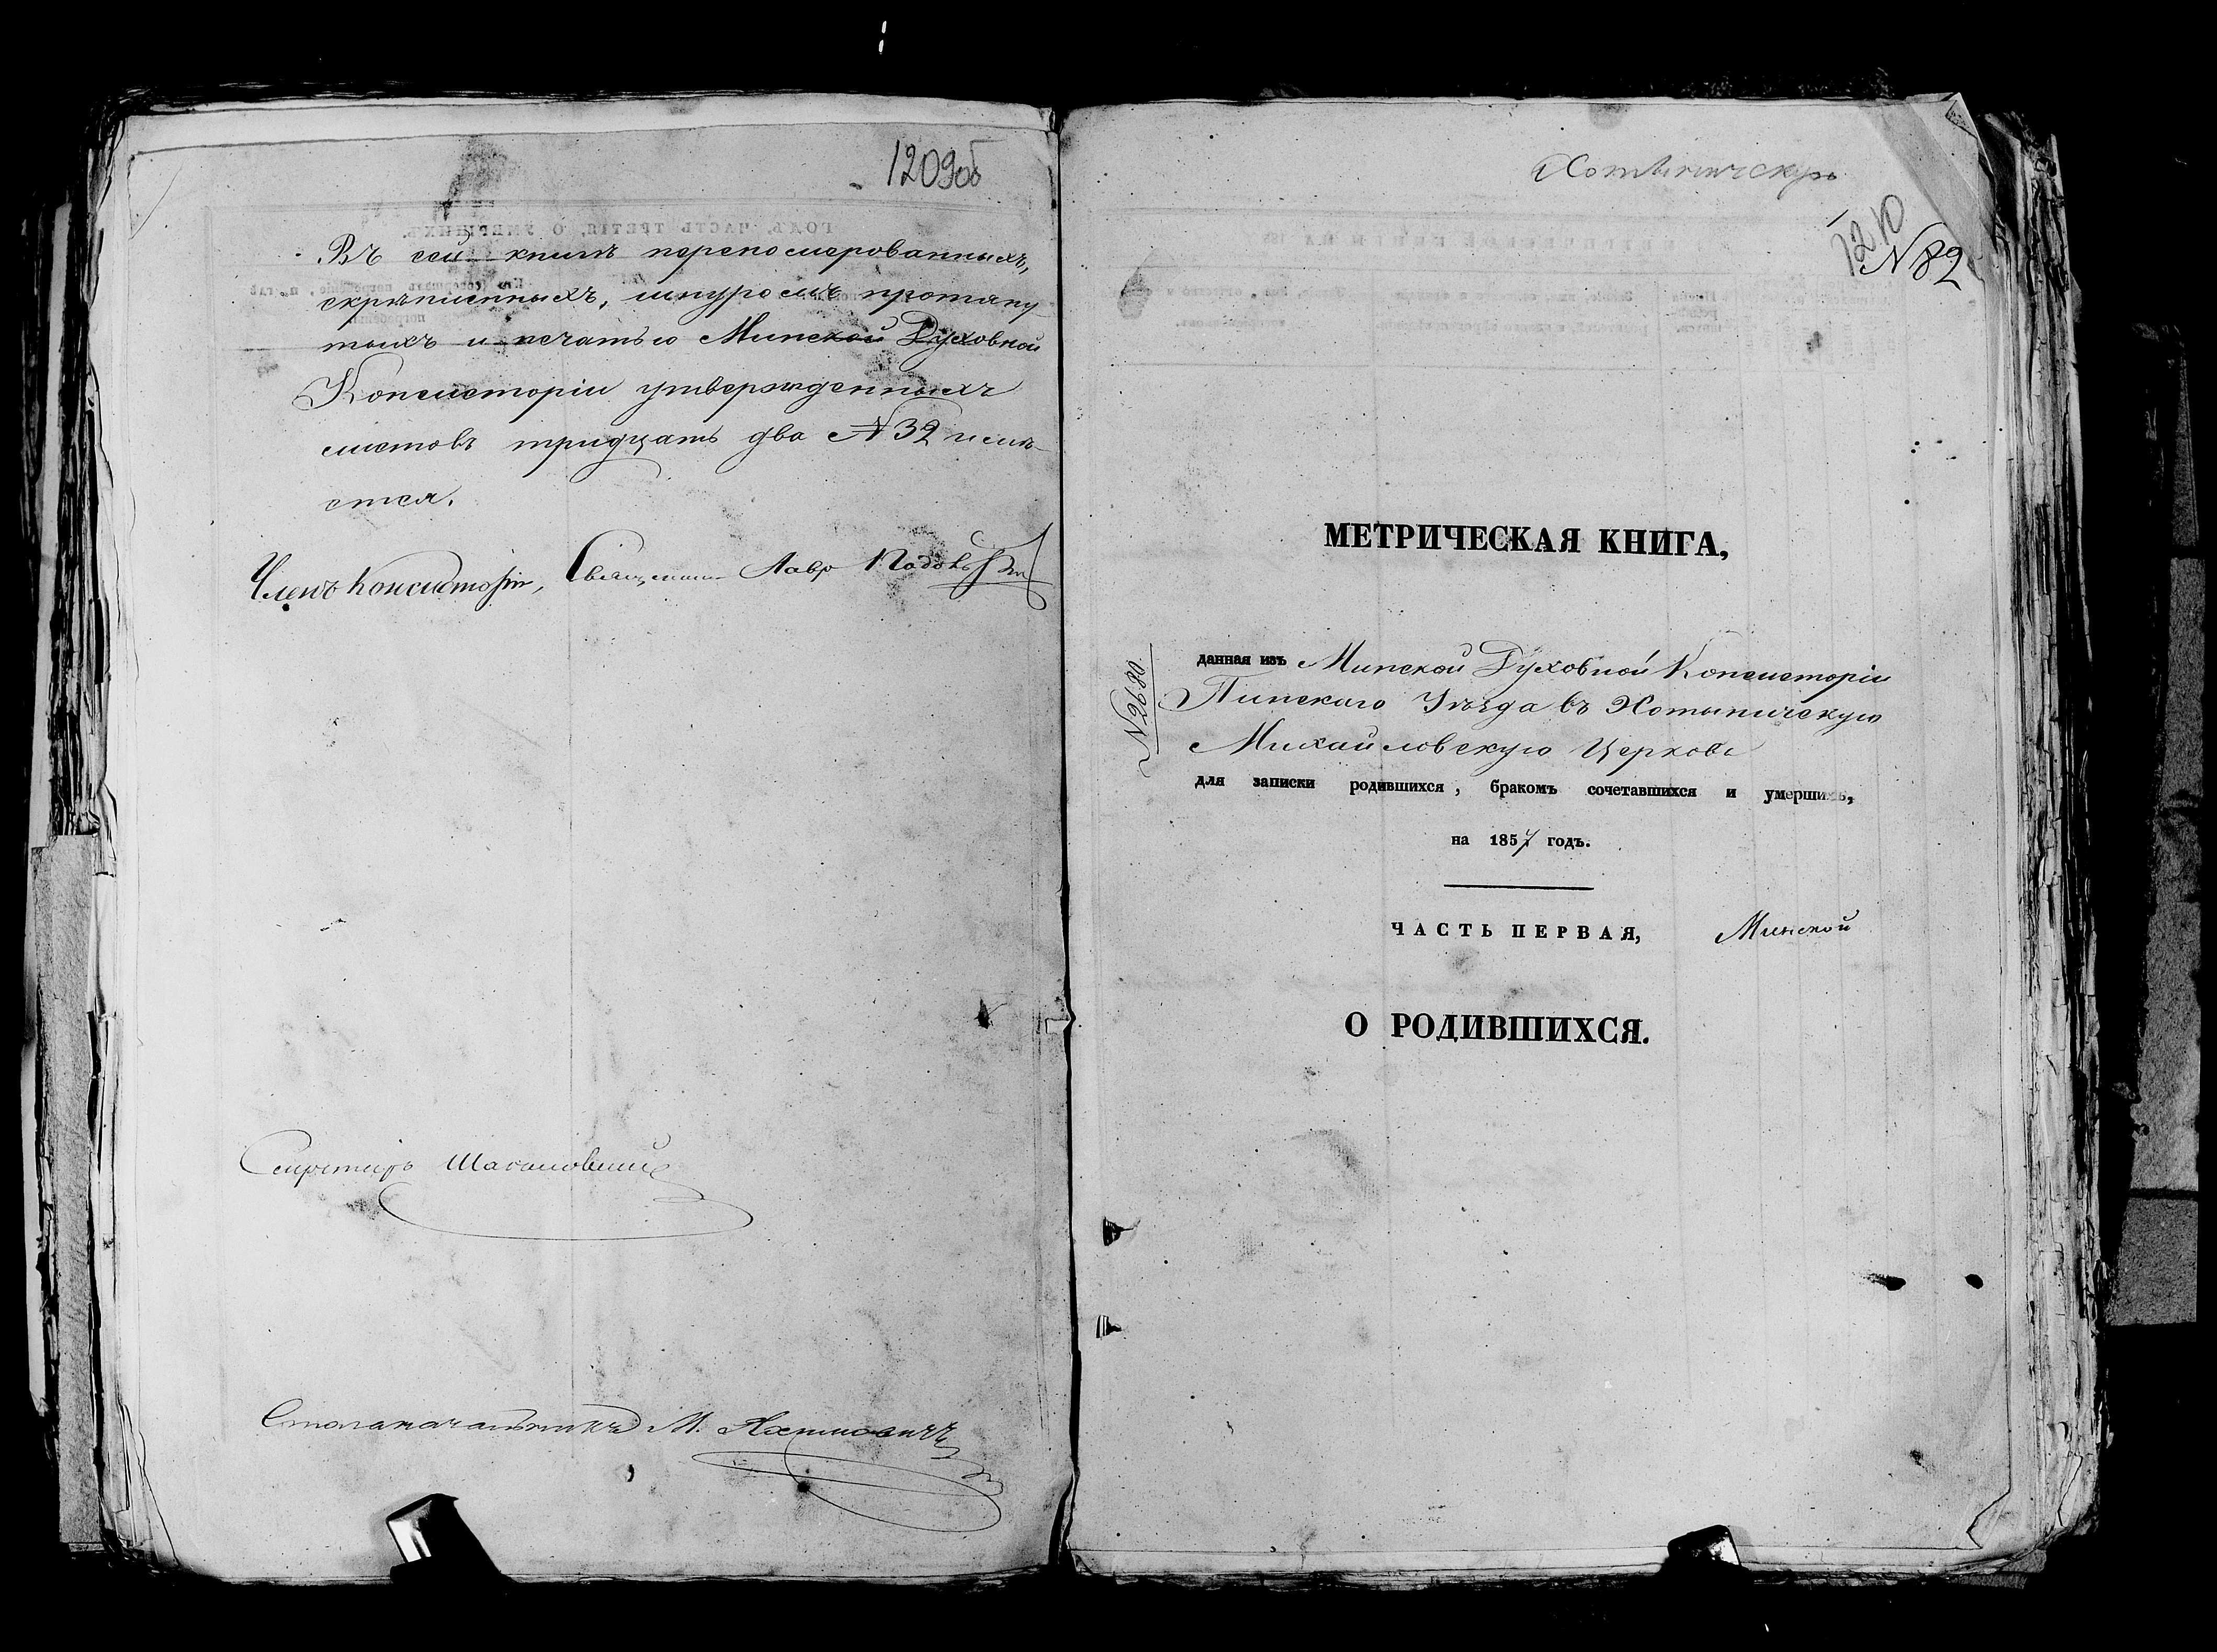 1209об
Въ сей книгѣ перепомерованныхъ,
скрѣпленныхъ, шнуромъ протяну
тыхъ и печатью Минской Духовной
Консисторіи утвержденныхъ
листовъ тридцать два №32 имѣ-
ется.
Членъ Консисторіи, Священникъ Лавр
Секретарь
Столоначальникъ М. Яхимовичъ
Хотыническую
1210
№ 82
МЕТРИЧЕСКАЯ КНИГА,
№2680
данная изъ Минской Духовной Консисторіи
Пинскаго Уѣзда въ Хотыничскую
Михайловскую Церковь
для записки родившихся, бракомъ сочетавшихся и умершихъ,
на 1857 годъ.
ЧАСТЬ ПЕРВАЯ, Минской
О РОДИВШИХСЯ.